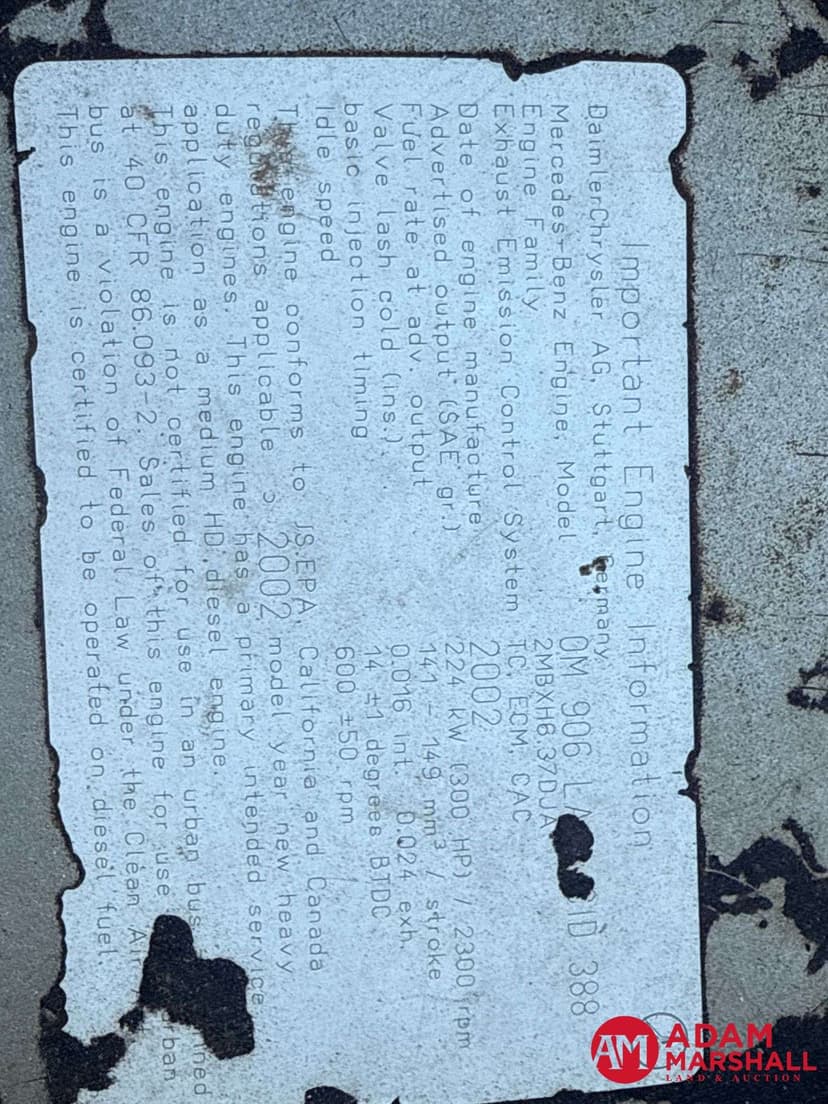 Important Engine Information
DaimlerChrysler AG, Stuttgart, Germany
Mercedes-Benz Engine, Model OM 906 LA CID 388
Engine Family 2MBXH6.37DJA
Exhaust Emission Control System TC, ECM, CAC
Date of engine manufacture 2002
Advertised output (SAE gr.) 224 kW (300 HP) / 2300 rpm
Fuel rate at adv. output 141 - 149 mm³ / stroke
Valve lash cold (ins.) 0.016 int. 0.024 exh.
basic injection timing 14 ±1 degrees BTDC
Idle speed 600 ±50 rpm
This engine conforms to US.EPA, California and Canada
regulations applicable 2002 model year new heavy
duty engines. This engine has a primary intended service
application as a medium HD diesel engine.
This engine is not certified for use in an urban bus
at 40 CFR 86.093-2. Sales of this engine for use
bus is a violation of Federal Law under the Clean Air
This engine is certified to be operated on diesel fuel.
AM ADAM
MARSHALL
LAND & AUCTION